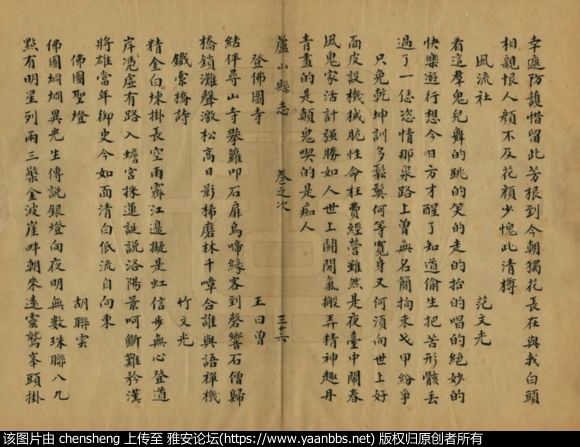 幸遮防護惜留此芳根到今朝獨花長在與我白頭
相親恨人顏不及花顏少愧此清樽
風流社 范文光
看這羣鬼兒舞的跳的笑的走的抬的唱的絕妙的
快樂遊行想今日方才醒了知道偷生把苦形骸丟
過了一恁恣情那泉路上曾無名簡拘束戈甲紛爭
只免乾坤訓多鬆鬢何等寬身又何須向世上好
面皮設機械脆性命枉費經營雖然是夜臺中鬧春
風鬼家活計强勝如人世上鬧閒氣搬弄精神趣丹
青畫的是顛鬼哭的是痴人
蘆山縣志 卷之次 三十六
登佛圖寺 王曰曽
結伴尋山寺攀籮叩石扉鳥啼緣客到磬響石僧歸
橋鎖灘聲激松高日影稀磨林千嶂合誰與語禪機
鐵索橋詩 竹文光
精金白煉掛長空雨霽江邊擬是虹信步無心登道
岸憑虛有路入蟾宮採蓮謎説洛陽景呵斷難矜漢
將雄當年御史今如面清白低流自向東
佛圖聖燈 胡聯雲
佛圖烱烱異光生傳説銀燈向夜明無數珠聯八九
點有明星列兩三縈金波崖畔朝來遠靈鷲峯頭掛
该图片由 chensheng 上传至 雅安论坛(https://www.yaanbbs.net) 版权归原创者所有